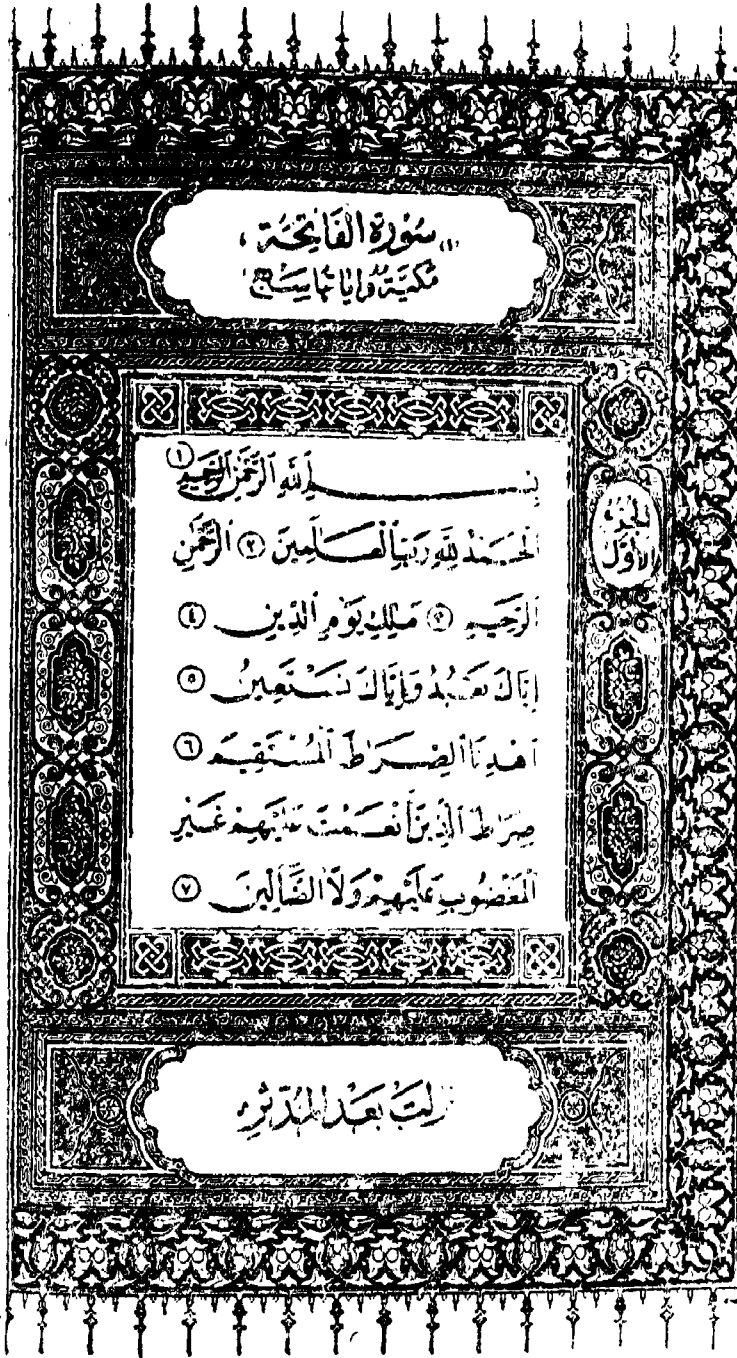 (١) سُورَةُ الْفَاتِحَةِ
مَكِّيَّة وَآيَاتُهَا سَبْعٌ
بِسْمِ ٱللَّهِ ٱلرَّحْمَٰنِ ٱلرَّحِيمِ ١
ٱلْحَمْدُ لِلَّهِ رَبِّ ٱلْعَـٰلَمِينَ ٢ ٱلرَّحْمَٰنِ
ٱلرَّحِيمِ ٣ مَـٰلِكِ يَوْمِ ٱلدِّينِ ٤
إِيَّاكَ نَعْبُدُ وَإِيَّاكَ نَسْتَعِينُ ٥
ٱهْدِنَا ٱلصِّرَٰطَ ٱلْمُسْتَقِيمَ ٦
صِرَٰطَ ٱلَّذِينَ أَنْعَمْتَ عَلَيْهِمْ غَيْرِ
ٱلْمَغْضُوبِ عَلَيْهِمْ وَلَا ٱلضَّآلِّينَ ٧
الجزء
الأول
نزلت بَعْدَ المُدَّثِّرِ